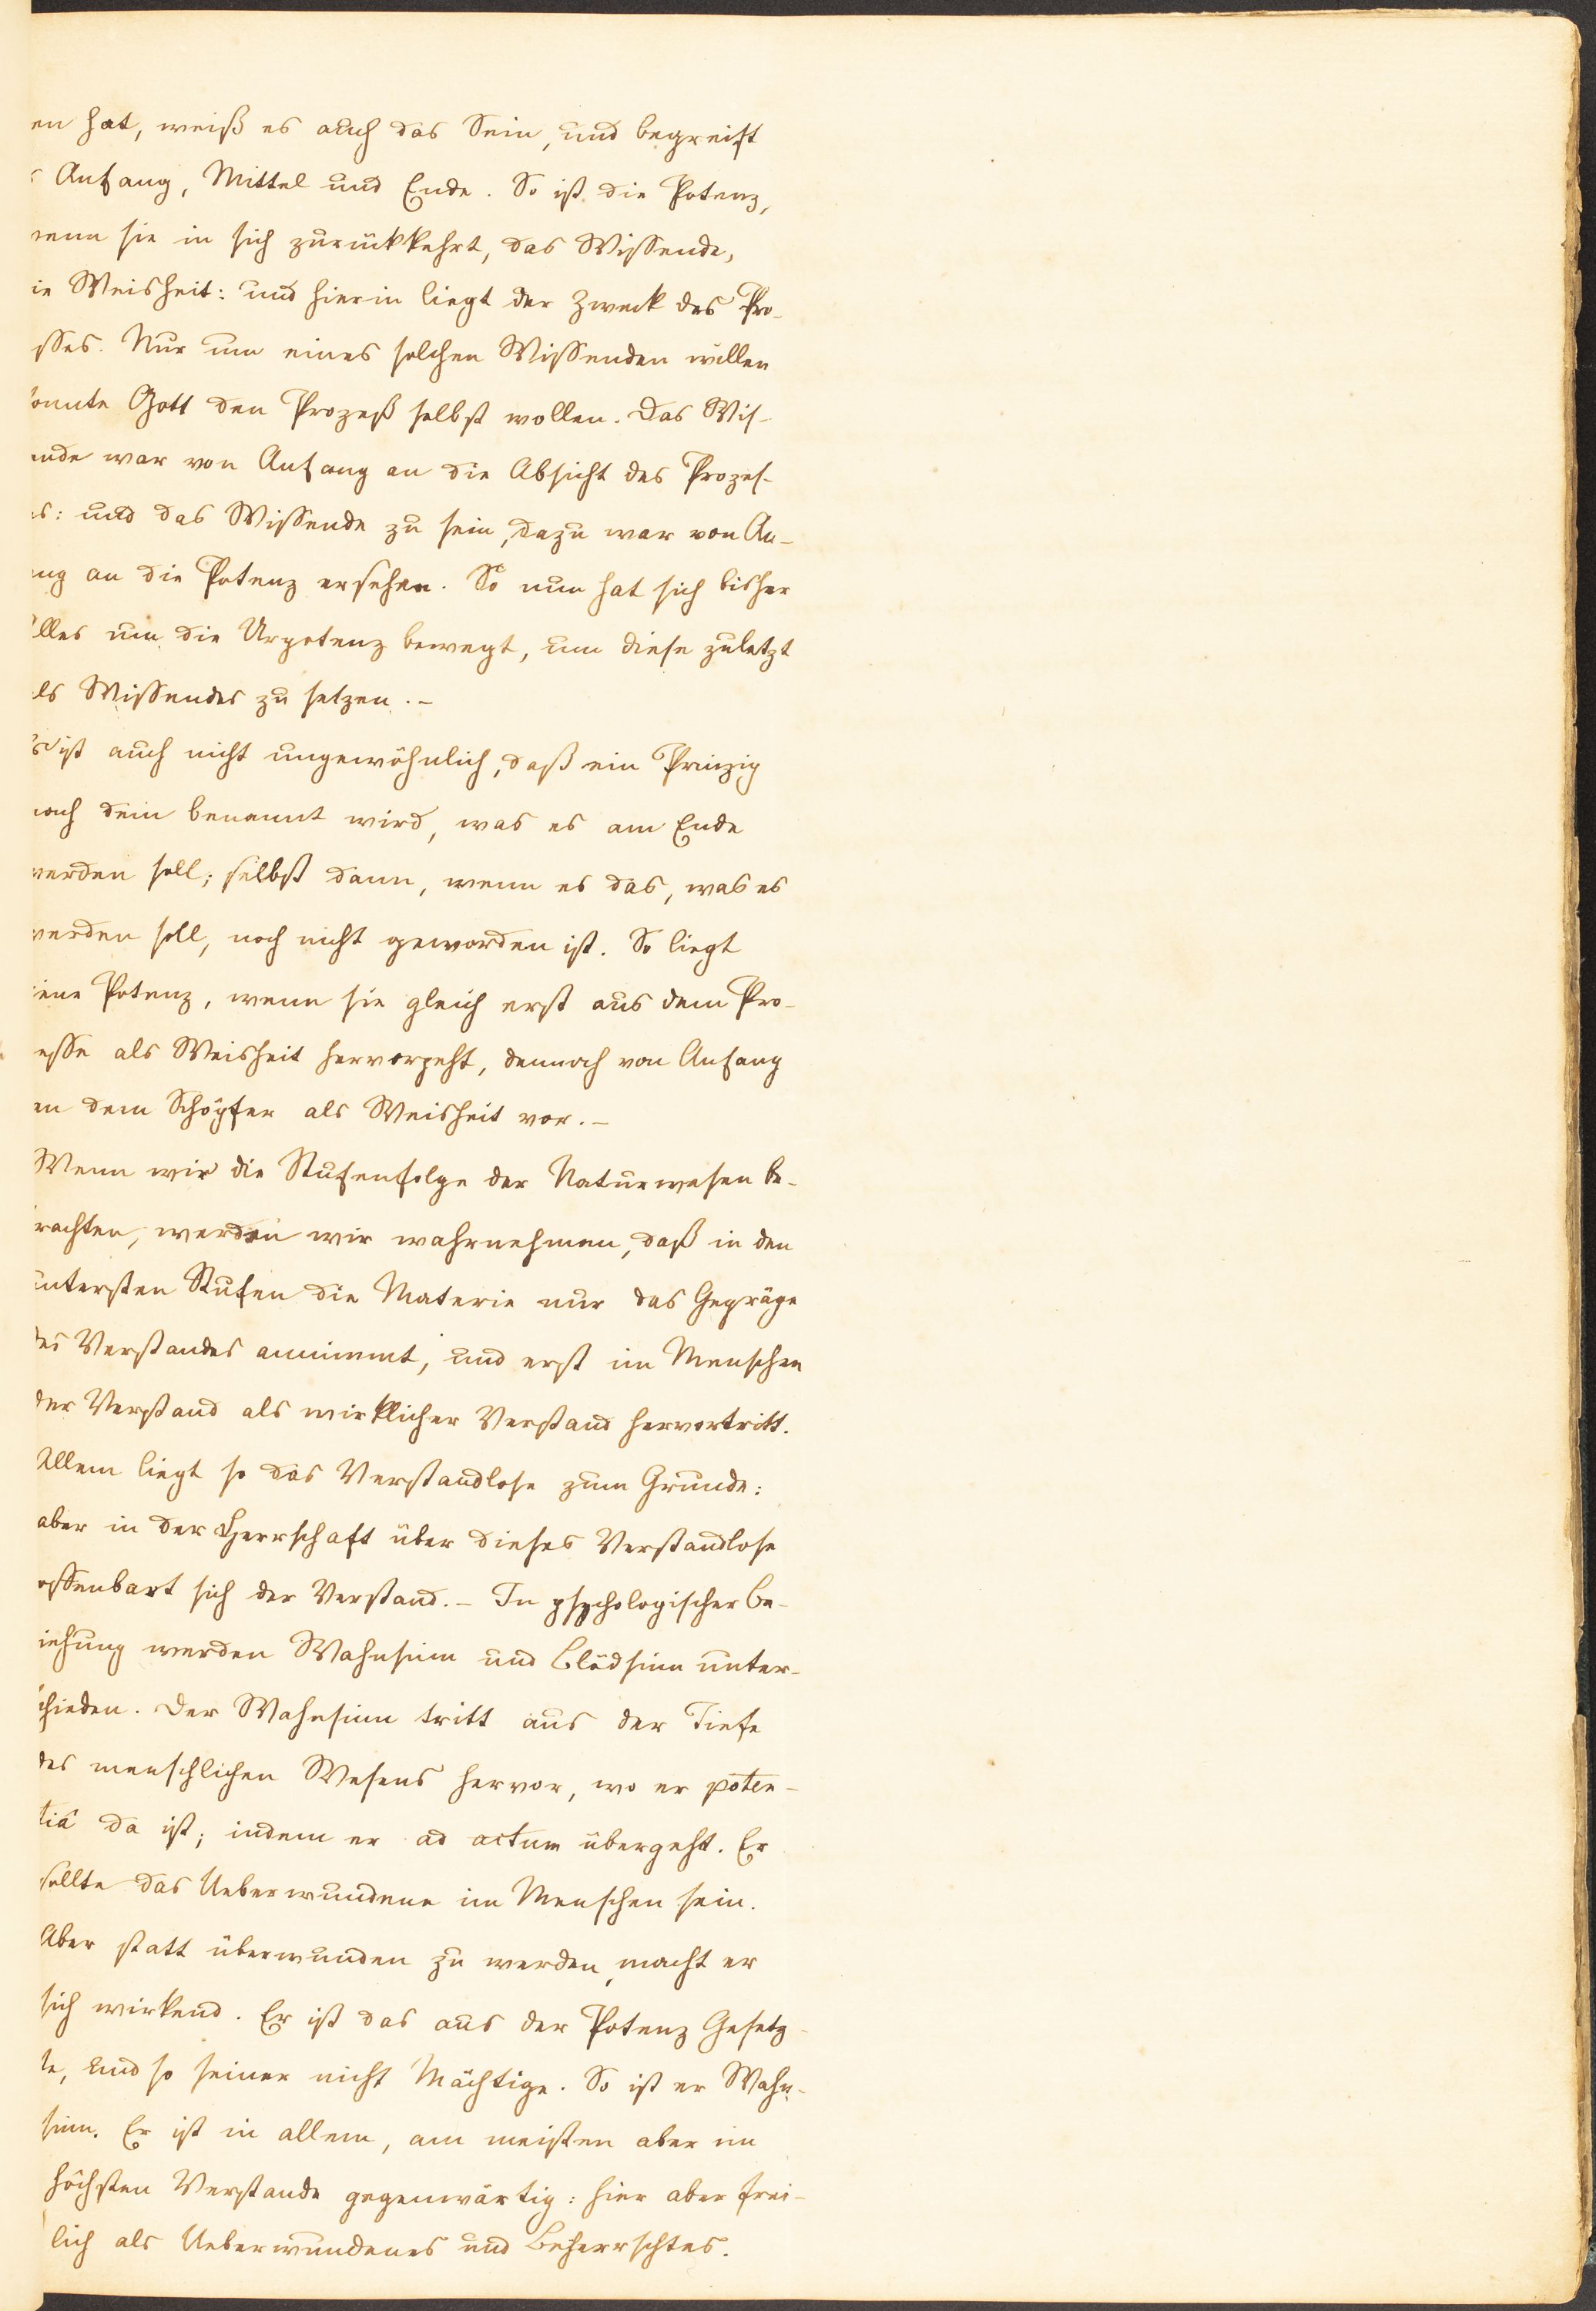 en hat, weiß es auch das Sein, und begreift
s Anfang, Mittel und Ende. So ist die Potenz,
wenn sie in sich zurükkehrt, das Wissende,
ie Weisheit: und hierin liegt der Zwek des Pro-
sses. Nur um eines solchen Wissenden willen
onnte Gott den Prozeß selbst wollen. Das Wis-
ende war von Anfang an die Absicht des Prozes-
es: und das Wissende zu sein, dazu war von An-
ng an die Potenz ersehen. So nun hat sich bisher
Alles um die Urpotenz bewegt, um diese zuletzt
als Wissendes zu setzen. -
s ist auch nicht ungewöhnlich, daß ein Prinzip
nach dem benannt wird, was es am Ende
werden soll; selbst dann, wenn es das, was es
werden soll, noch nicht geworden ist. So liegt
jene Potenz, wenn sie gleich erst aus dem Pro-
esse als Weisheit hervorgeht, dennoch von Anfang
an dem Schöpfer als Weisheit vor. -
Wenn wir die Stufenfolge der Naturwesen be-
trachten, werden wir wahrnehmen, daß in den
untersten Stufen die Materie nur das Gepräge
des Verstandes annimmt, und erst im Menschen
der Verstand als wirklicher Verstand hervortritt.
Allem liegt so das Verstandlose zum Grunde:
aber in der Herrschaft über dieses Verstandlose
offenbart sich der Verstand. - In psychologischer Be-
iehung werden Wahnsinn und Blödsinn unter-
schieden. Der Wahnsinn tritt aus der Tiefe
des menschlichen Wesens hervor, wo er poten-
tiâ da ist; indem er ad actum übergeht. Er
sollte das Ueberwundene im Menschen sein.
Aber statt überwunden zu werden, macht er
sich wirkend. Er ist das aus der Potenz Gesetz-
te, und so seiner nicht Mächtige. So ist er Wahn-
sinn. Er ist in allem, am meisten aber im
höchsten Verstande gegenwärtig: hier aber frei-
lich als Ueberwundenes und Beherrschtes.